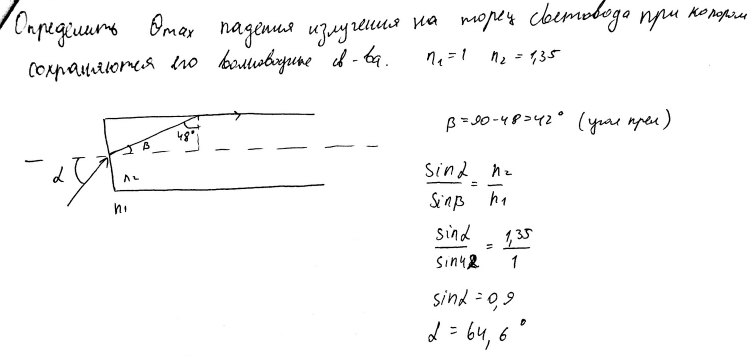 Определить θmax падения излучения на торец световода при котором
сохраняются его волноводные св-ва. n₁=1 n₂=1,35
β=90-48=42° (угол прел)
48°
β
α
n₂
n₁
sinα/sinβ = n₂/n₁
sinα/sin42 = 1,35/1
sinα=0,9
α=64,6°